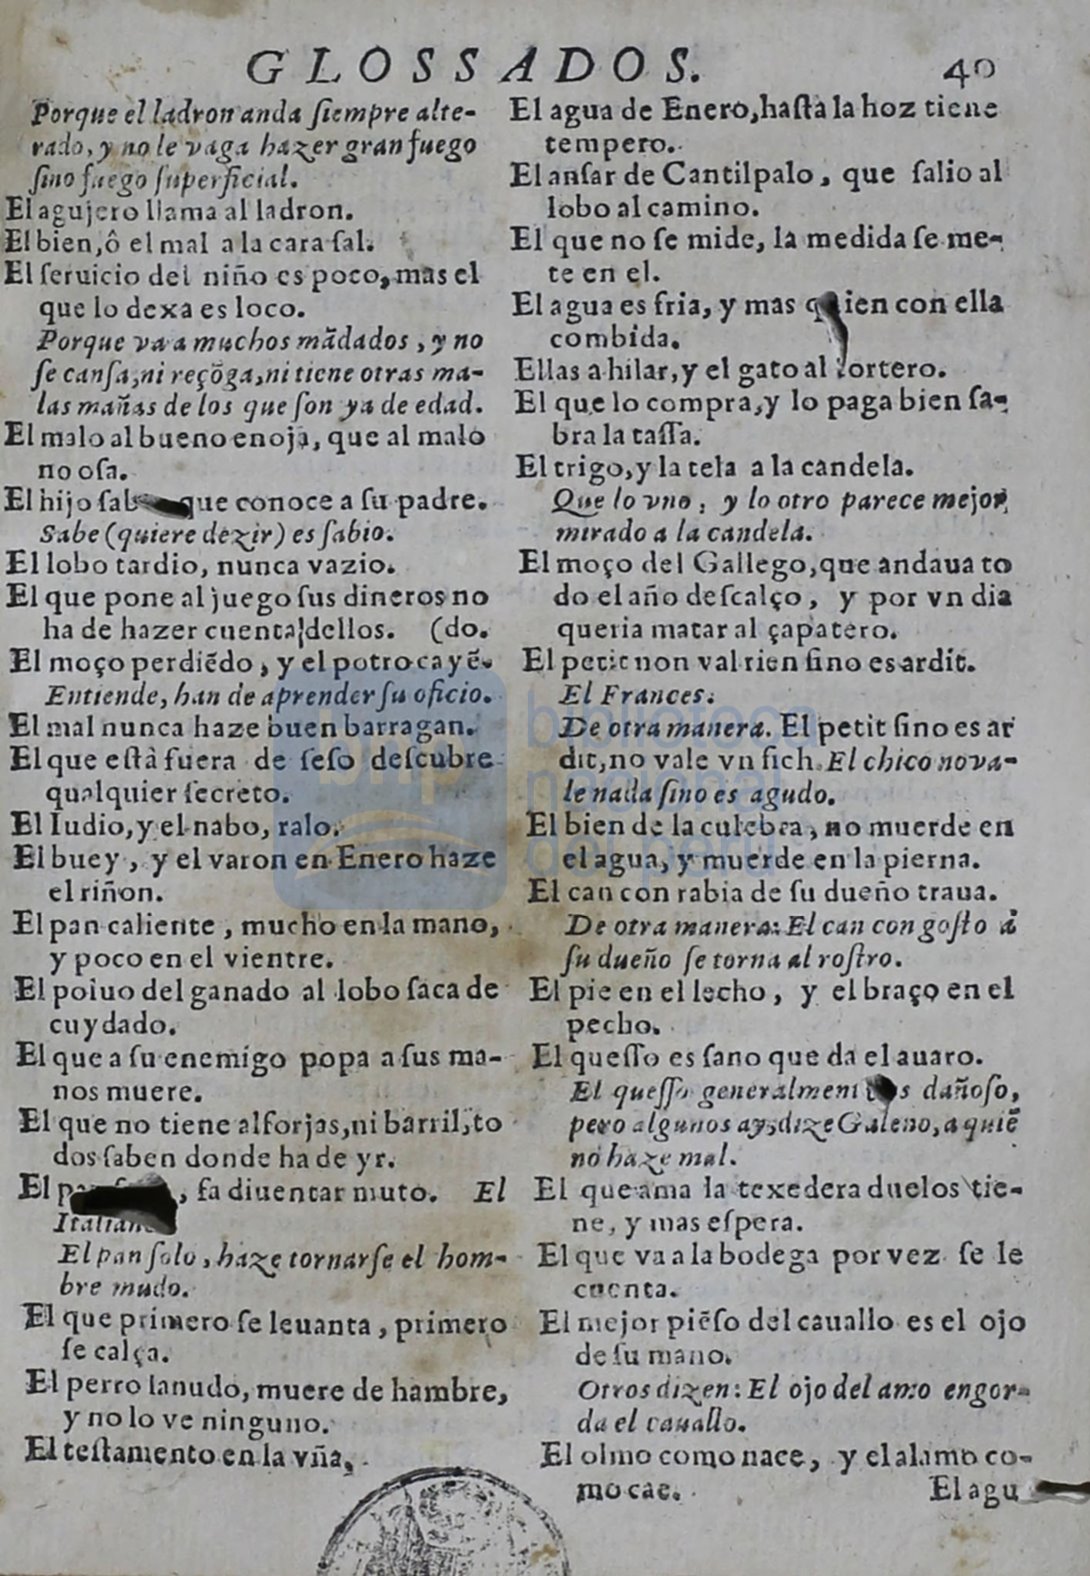 GLOSSADOS. 40
Porque el ladron anda ſiempre alte-
rado, y no le vaga hazer gran fuego
ſino fuego ſuperficial.
El agujero llama al ladron.
El bien, ô el mal a la cara ſal.
El ſeruicio del niño es poco, mas el
que lo dexa es loco.
Porque va a muchos mãdados, y no
ſe canſa, ni reçõga, ni tiene otras ma-
las mañas de los que ſon ya de edad.
El malo al bueno enoja, que al malo
no oſa.
El hijo ſab que conoce a ſu padre.
Sabe (quiere dezir) es ſabio.
El lobo tardio, nunca vazio.
El que pone al juego ſus dineros no
ha de hazer cuenta dellos. (do.
El moço perdiẽdo, y el potro cayẽ-
Entiende, han de aprender ſu oficio.
El mal nunca haze buen barragan.
El que eſtà fuera de ſeſo deſcubre
qualquier ſecreto.
El Iudio, y el nabo, ralo.
El buey, y el varon en Enero haze
el riñon.
El pan caliente, mucho en la mano,
y poco en el vientre.
El poiuo del ganado al lobo ſaca de
cuydado.
El que a ſu enemigo popa a ſus ma-
nos muere.
El que no tiene alforjas, ni barril, to
dos ſaben donde ha de yr.
El , fa diuentar muto. El
Italiano
El pan ſolo, haze tornarſe el hom-
bre mudo.
El que primero ſe leuanta, primero
ſe calça.
El perro lanudo, muere de hambre,
y no lo ve ninguno.
El teſtamento en la vña,
El agua de Enero, haſta la hoz tiene
tempero.
El anſar de Cantilpalo, que ſalio al
lobo al camino.
El que no ſe mide, la medida ſe me-
te en el.
El agua es fria, y mas quien con ella
combida.
Ellas a hilar, y el gato al tortero.
El que lo compra, y lo paga bien ſa-
bra la taſſa.
El trigo, y la tela a la candela.
Que lo vno, y lo otro parece mejor
mirado a la candela.
El moço del Gallego, que andaua to
do el año deſcalço, y por vn dia
queria matar al çapatero.
El petit non val rien ſino es ardit.
El Frances.
De otra manera. El petit ſino es ar
dit, no vale vn fich. El chico no va-
le nada ſino es agudo.
El bien de la culebra, no muerde en
el agua, y muerde en la pierna.
El can con rabia de ſu dueño traua.
De otra manera: El can con goſto à
ſu dueño ſe torna al roſtro.
El pie en el lecho, y el braço en el
pecho.
El queſſo es ſano que da el auaro.
El queſſo generalmente es dañoſo,
pero algunos ay, dize Galeno, a quiẽ
no haze mal.
El que ama la texedera duelos tie-
ne, y mas eſpera.
El que va a la bodega por vez ſe le
cuenta.
El mejor piẽſo del cauallo es el ojo
de ſu mano.
Otros dizen: El ojo del amo engor-
da el cauallo.
El olmo como nace, y el alamo co-
mo cae. El agu
biblioteca
nacional
del perú
bnp